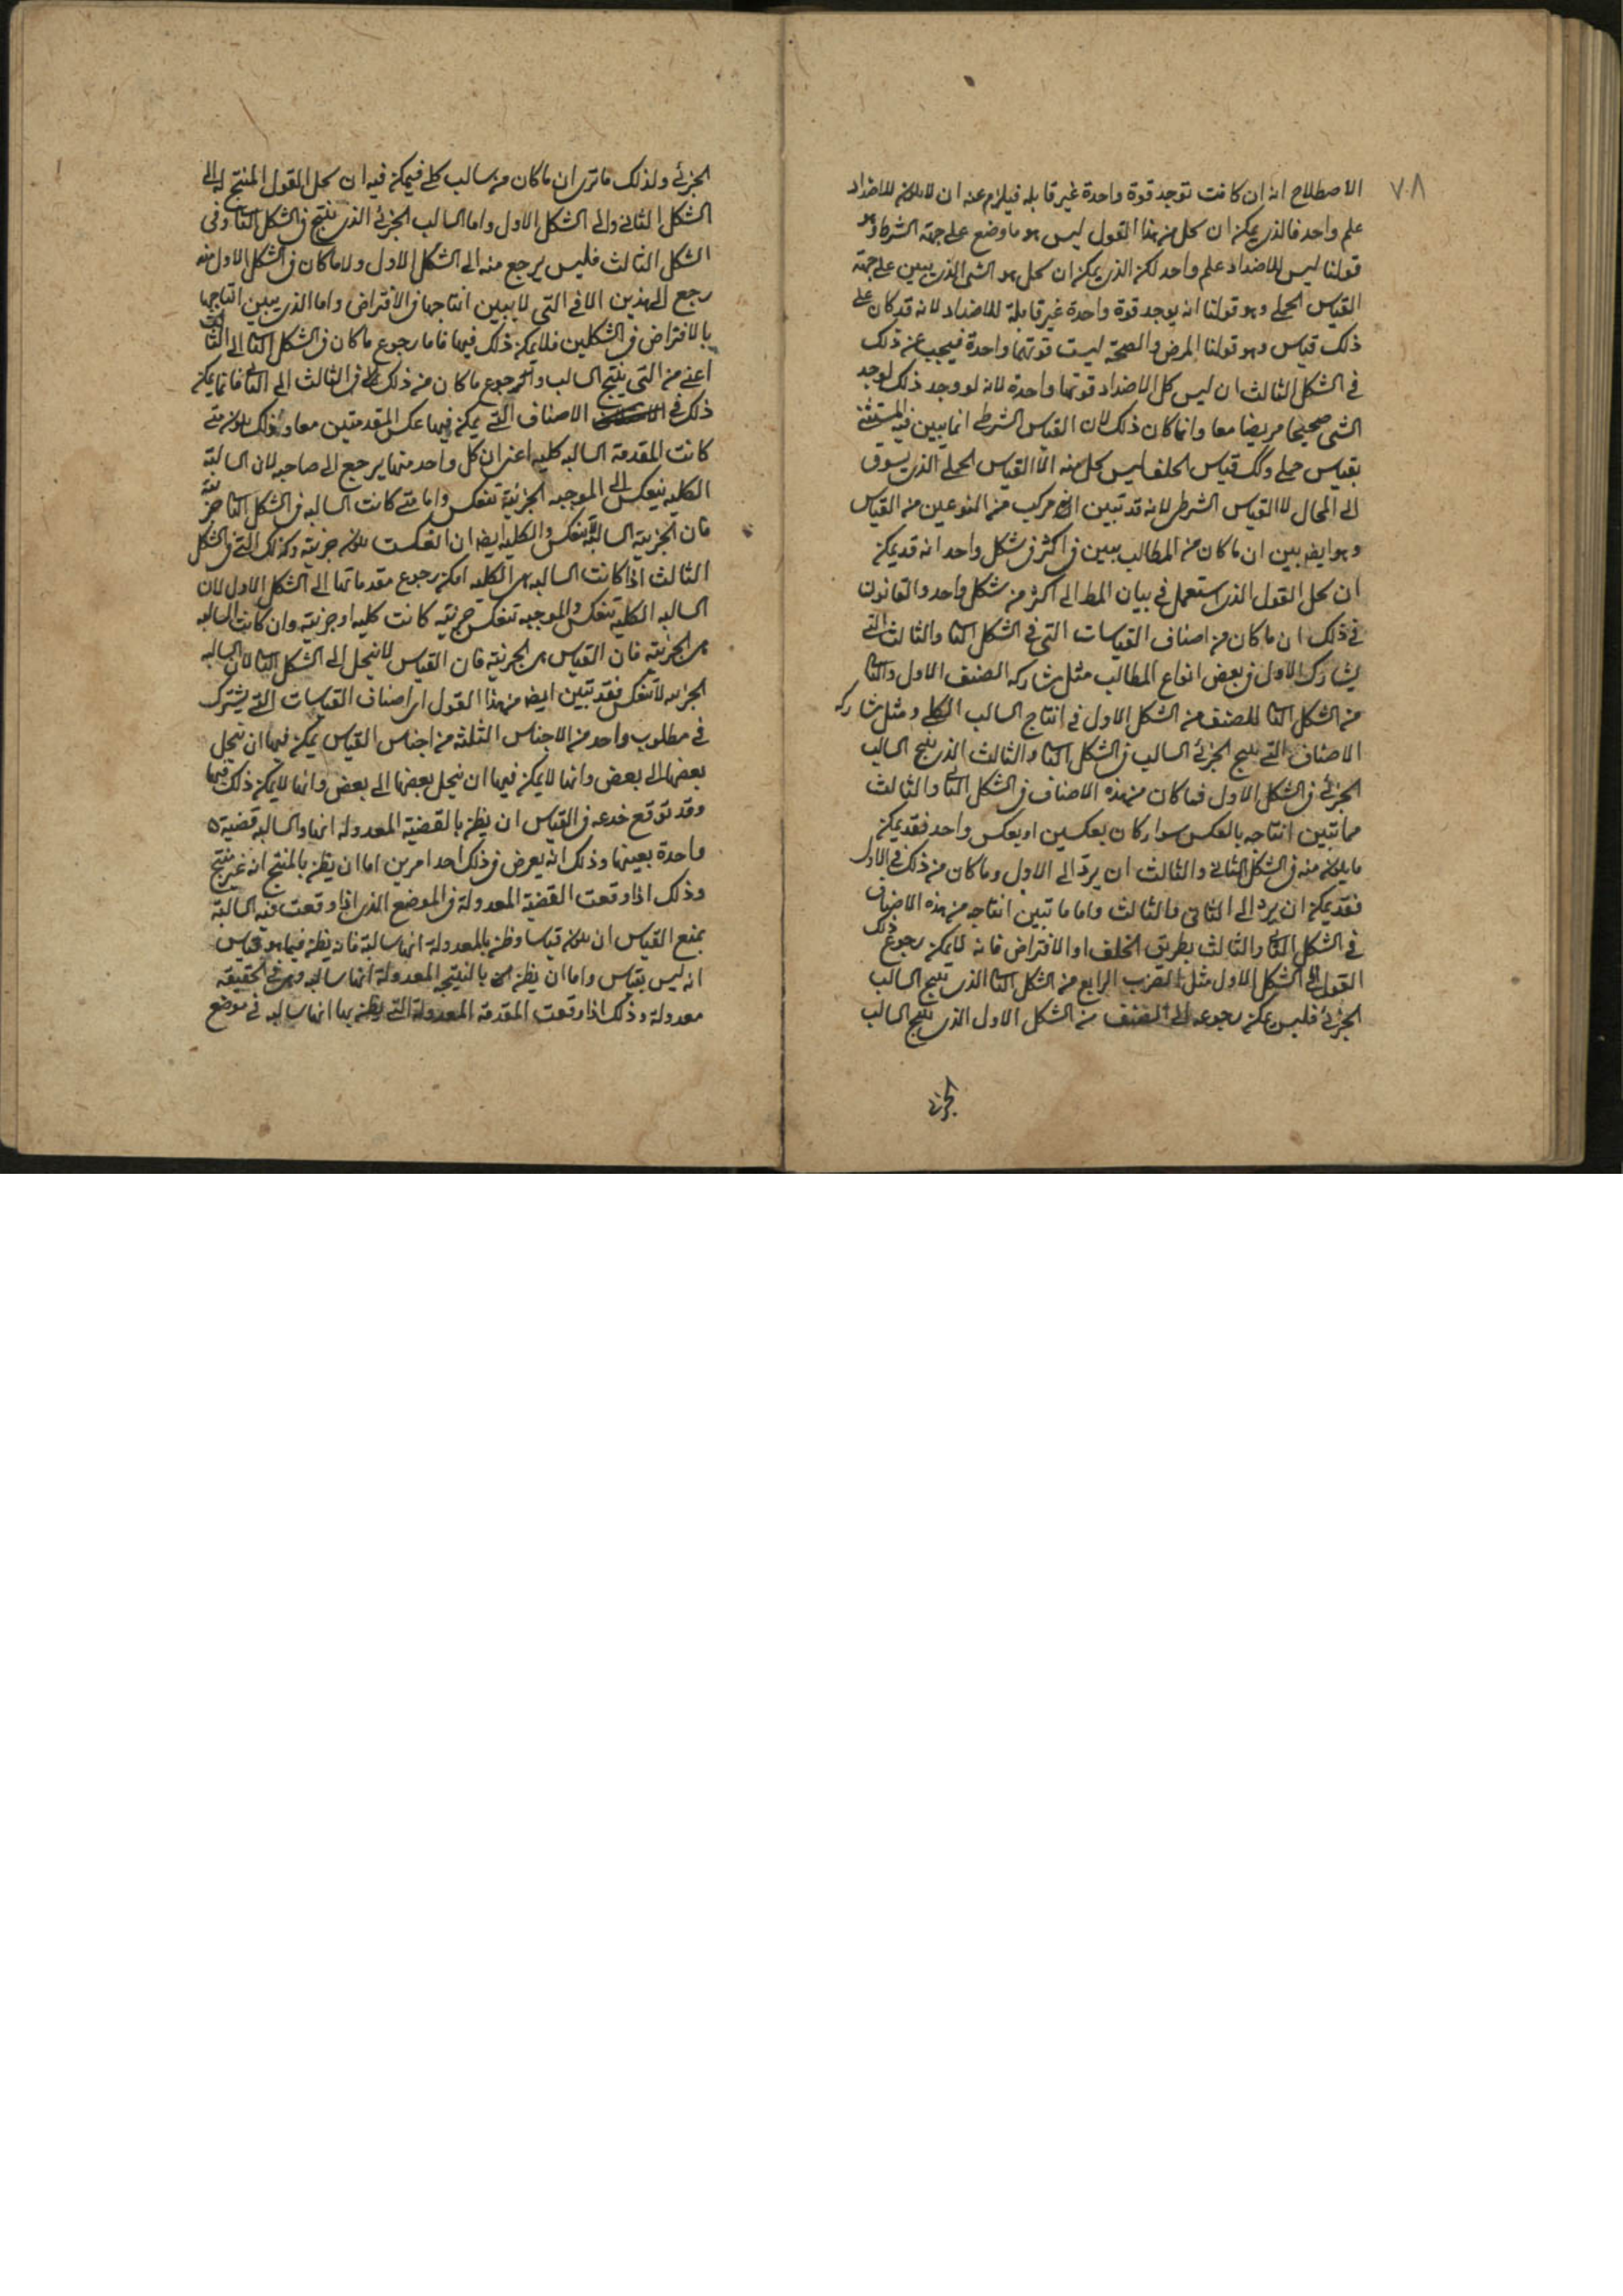 ٧٠٨
الاصطلاح انه ان كانت توجد قوة واحدة غير قابله فيلزم عنه ان لا يكون للاضداد
علم واحد فالذى يمكن ان يحل من هذا القول ليس هو ما وضع على جهة الشرط وهو
قولنا ليس للاضداد علم واحد لكن الذى يمكن ان يحل هو الشى الذى يبين على جهة
القياس الحملى وهو قولنا انه يوجد قوة واحدة غير قابلة للاضداد لانه قد كان على
ذلك قياس وهو قولنا المرض والصحة ليست قوتهما واحدة فيجب عن ذلك
فى الشكل الثالث ان ليس كل الاضداد قوتها واحدة لانه لو وجد ذلك لوجد
الشى صحيحا مريضا معا وانما كان ذلك لان القياس الشرطى انما يبين فيه المستثنى
بقياس حملى وكك قياس الخلف ليس يحل منه الا القياس الحملى الذى يسوق
الى المحال لا القياس الشرطى لانه قد تبين انه مركب من النوعين من القياس
وهو ايضا بين ان ما كان من المطالب يبين فى اكثر فى شكل واحد انه قد يمكن
ان يحل القول الذى استعمل فى بيان المط الى اكثر من شكل واحد والقانون
فى ذلك ان ما كان من اصناف القياسات التى فى الشكل الثانى والثالث التى
يشارك الاول فى بعض انواع المطالب مثل مشاركه الصنف الاول والثانى
من الشكل الثانى للصنف من الشكل الاول فى انتاج السالب الكلى ومثل مشاركه
الاصناف التى ينتج الجزئى السالب فى الشكل الثانى والثالث الذى ينتج السالب
الجزئى فى الشكل الاول فما كان من هذه الاصناف فى الشكل الثانى والثالث
مما تبين انتاجه بالعكس سواء كان بعكسين او بعكس واحد فقد يمكن
ما يكون منه فى الشكل الثانى والثالث ان يرد الى الاول وما كان من ذلك فى الاول
فقد يمكن ان يرد الى الثانى والثالث واما ما تبين انتاجه من هذه الاصناف
فى الشكل الثانى والثالث بطريق الخلف او الافتراض فانه لا يمكن رجوع ذلك
القول الى الشكل الاول مثل الضرب الرابع من الشكل الثانى الذى ينتج السالب
الجزئى فليس يمكن رجوعه الى الصنف من الشكل الاول الذى ينتج السالب
الجزئى
الجزئى ولذلك ما ترى ان ما كان من سالب كلى فيمكن فيه ان يحل القول المنتج له الى
الشكل الثانى والى الشكل الاول واما السالب الجزئى الذى ينتج فى الشكل الثانى وفى
الشكل الثالث فليس يرجع منه الى الشكل الاول ولا ما كان فى الشكل الاول منه
رجع الى هذين الا فى التى لا يبين انتاجها فى الافتراض واما الذى يبين انتاجها
بالافتراض فى الشكلين فلا يمكن ذلك فيها فاما رجوع ما كان فى الشكل الثانى الى الثالث
اعنى من التى ينتج السالب والجزئى رجوع ما كان من ذلك فى الثالث الى الثانى فانما يمكن
ذلك فى الاصناف التى يمكن فيها عكس المقدمتين معا وذلك يكون متى
كانت المقدمة السالبه كليه اعنى ان كل واحد منهما يرجع الى صاحبه لان السالبة
الكليه ينعكس الى الموجبه الجزئية تنعكس واما متى كانت السالبه فى الشكل الثانى جزئية
فان الجزئية السالبة لا تنعكس والكليه ايضا ان انعكست يكون جزئية وكذلك التى فى الشكل
الثالث اذا كانت السالبه هى الكليه امكن رجوع مقدماتها الى الشكل الاول لان
السالبه الكلية تنعكس والموجبه تنعكس جزئية كانت كليه او جزئية وان كانت السالبه
هى الجزئية فان القياس لا ينحل الى الشكل الثانى لان السالبه
الجزئيه لا تنعكس فقد تبين ايضا من هذا القول اى اصناف القياسات التى يشترك
فى مطلوب واحد من الاجناس الثلثة من اجناس القياس يمكن فيها ان ينحل
بعضها الى بعض وانما لا يمكن فيها ان ينحل بعضها الى بعض وانما لا يمكن ذلك فيها
وقد توقع خدعه فى القياس ان يظن بالقضية المعدولة انها والسالبه قضية
واحدة بعينها وذلك انه يعرض فى ذلك احد امرين اما ان يظن بالمنتج انه غير منتج
وذلك اذا وقعت القضية المعدولة فى الموضع الذى اذا وقعت فيه السالبة
يمنع القياس ان يكون قياسا وظن بالمعدولة انها سالبة فانه يظن فيما هو قياس
انه ليس بقياس واما ان يظن بالنتيجه المعدولة انها سالبه وهى فى الحقيقه
معدولة وذلك اذا وقعت المقدمة المعدولة التى يظن بها انها سالبه فى موضع